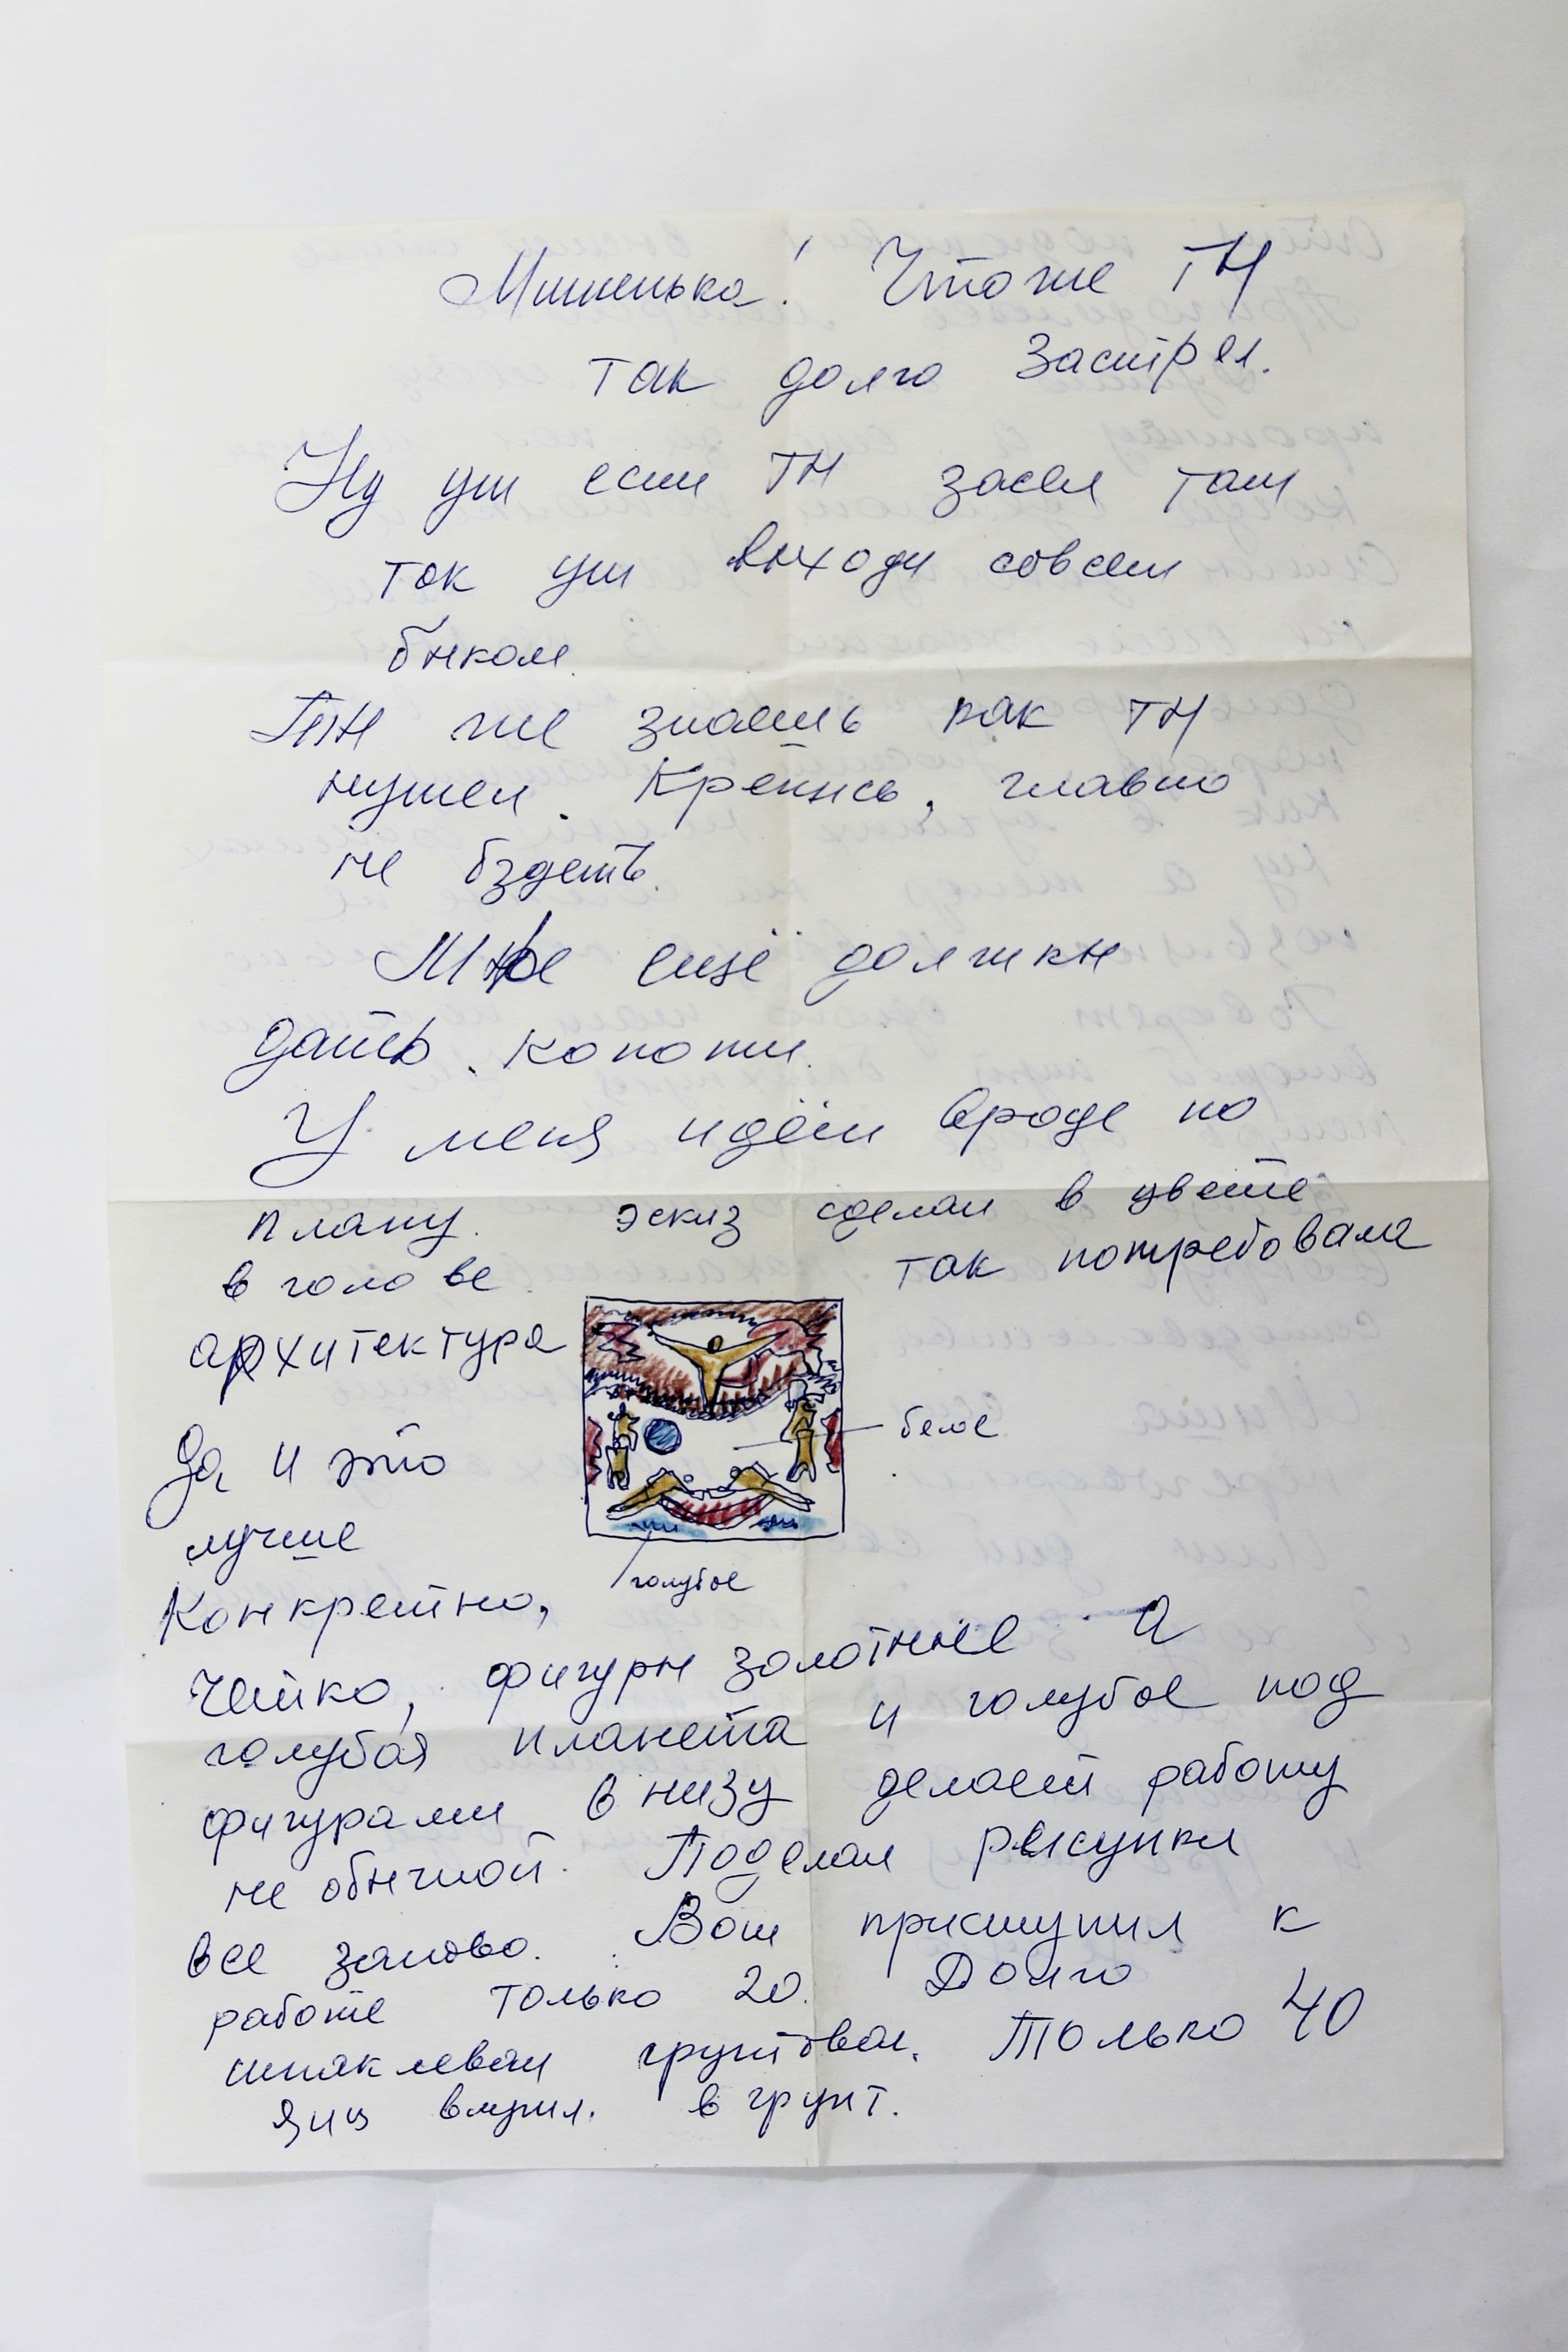 Мишенька! Что же ТЫ
так долго застрял.
Ну уш если ТЫ засел там
ток уш выходи совсем
быком.
Ты же знаешь как ты
нужен. Крепись, главно
не бздеть.
Мне ещё должны
дать. копоти.
У меня идёт вроде по
плану. эскиз сделал в цвете
в голове так потребовала
архитектура
белое
Да и это
лучше
голубое
Конкретно,
чётко, фигуры золотные а
голубая планета и голубое под
фигурами в низу делает работу
не обычной. Поделал рисунки
все заново. Вот приступил к
работе только 20. Долго
шпаклевал грунтовал. Только 40
яиц влупил. в грунт.